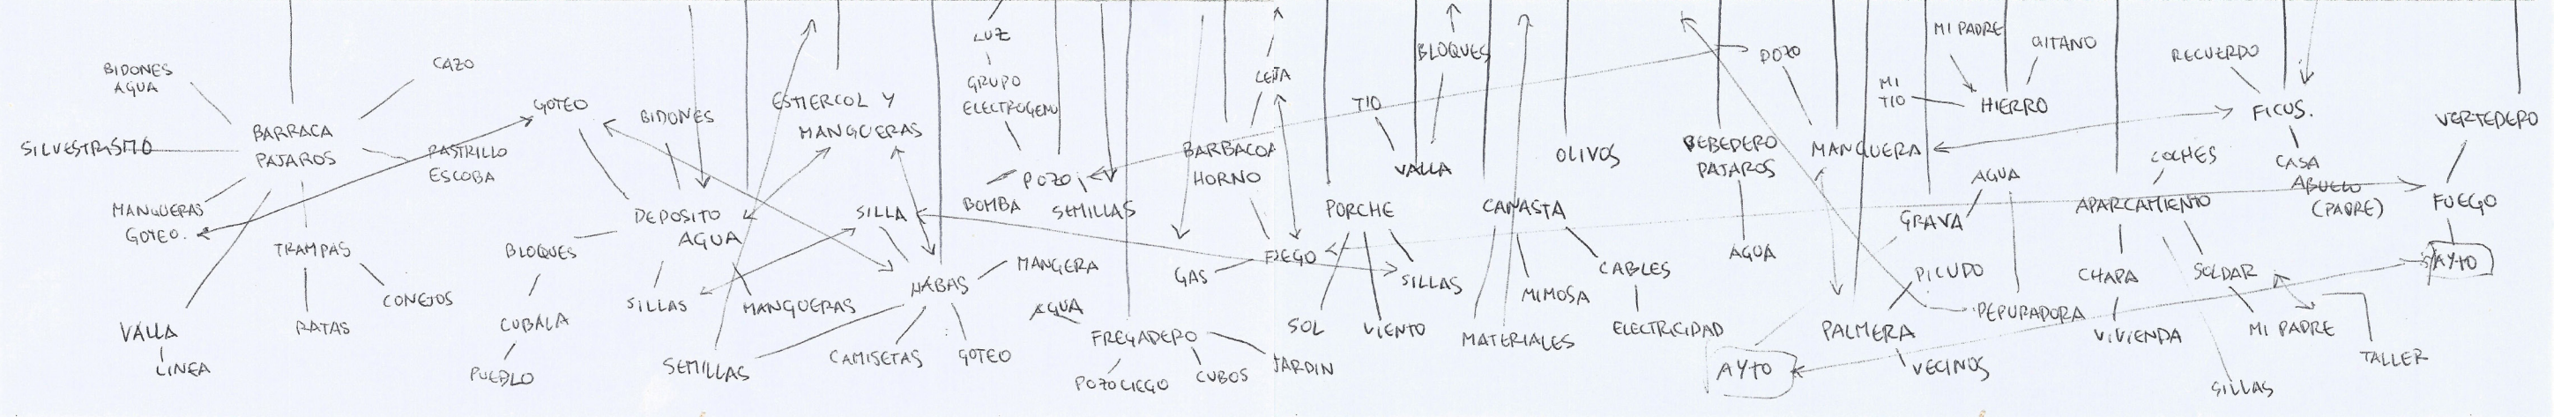 BIDONES
AGUA
CAZO
SILVESTRISMO
BARRACA
PAJAROS
RASTRILLO
ESCOBA
MANGUERAS
GOTEO.
TRAMPAS
CONEJOS
RATAS
VALLA
LINEA
GOTEO
BIDONES
ESTIERCOL Y
MANGUERAS
DEPOSITO
AGUA
BLOQUES
CUBALA
PUEBLO
SILLAS
MANGUERAS
SEMILLAS
SILLA
HABAS
MANGERA
CAMISETAS
GOTEO
LUZ
GRUPO
ELECTROGENO
POZO
BOMBA
SEMILLAS
AGUA
FREGADERO
POZO CIEGO
CUBOS
JARDIN
LEÑA
BARBACOA
HORNO
GAS
FUEGO
TIO
BLOQUES
VALLA
PORCHE
SOL
VIENTO
SILLAS
CANASTA
MATERIALES
MIMOSA
CABLES
ELECTRICIDAD
OLIVOS
BEBEDERO
PAJAROS
AGUA
POZO
MANGUERA
AYTO
PALMERA
PICUDO
VECINOS
DEPURADORA
MI PADRE
GITANO
MI
TIO
HIERRO
AGUA
GRAVA
COCHES
APARCAMIENTO
CHAPA
VIVIENDA
SOLDAR
MI PADRE
TALLER
SILLAS
RECUERDO
FICUS.
CASA
ABUELO
(PADRE)
VERTEDERO
FUEGO
AYTO